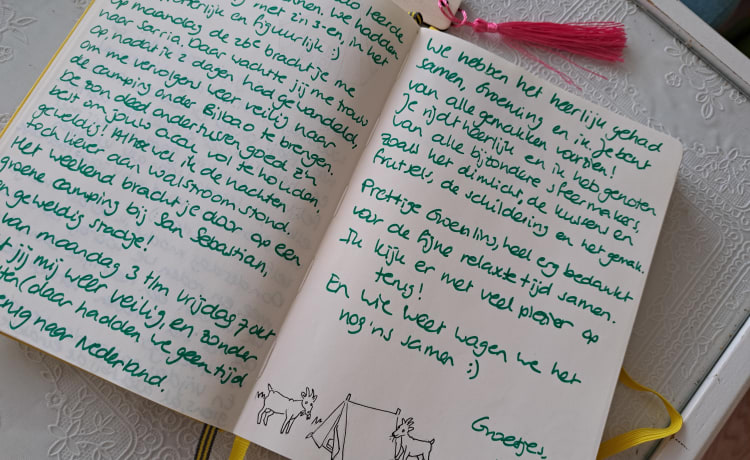 leerde
met z'n 3-en in het
en figuurlijk :)
we hadden
Op maandag de 26e bracht je me
naar Sarria. Daar wachtte jij me trouw
op, nadat ik 2 dagen had gewandeld,
om me vervolgens weer veilig naar
de camping onder Bilbao te brengen.
De zon deed ondertussen goed z'n
best om jouw accu vol te houden,
geweldig! Alhoewel ik de nachten
toch liever aan walstroom stond.
Het weekend bracht je door op een
groene camping bij San Sebastian,
geweldig stadje!
van maandag 3 t/m vrijdag 7 okt
jij mij weer veilig, en zonder
(daar hadden we geen tijd
naar Nederland.
We hebben het heerlijk gehad
samen, Groenling en ik. Je bent
van alle gemakken voorzien!
Je rijdt heerlijk en ik heb genoten
van alle bijzondere sfeermakers,
zoals het dimlicht, de kussens en
frutsels, de schildering en het gemak.
Prettige Groenling, heel erg bedankt
voor de fijne relaxte tijd samen.
Ik kijk er met veel plezier op
terug!
En wie weet wagen we het
nog 'ns samen :)
Groetjes,